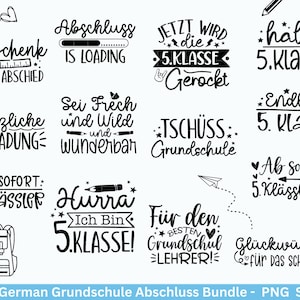 Abschluss
IS LOADING
JETZT WIRD
die
5.KLASSE
Gerockt
5.KLA
schenk
ABSCHIED
Sei Frech
und Wild
und
wunderbar
TSCHÜSS
Grundschule
5. KL
zliche
ADUNG
Ab so
5.Klässl
SOFORT:
Hurra
Ich Bin
5.KLASSE!
Für den
BESTEN
Grundschul
LEHRER!
Glückwü
für das sch
German Grundschule Abschluss Bundle - PNG S